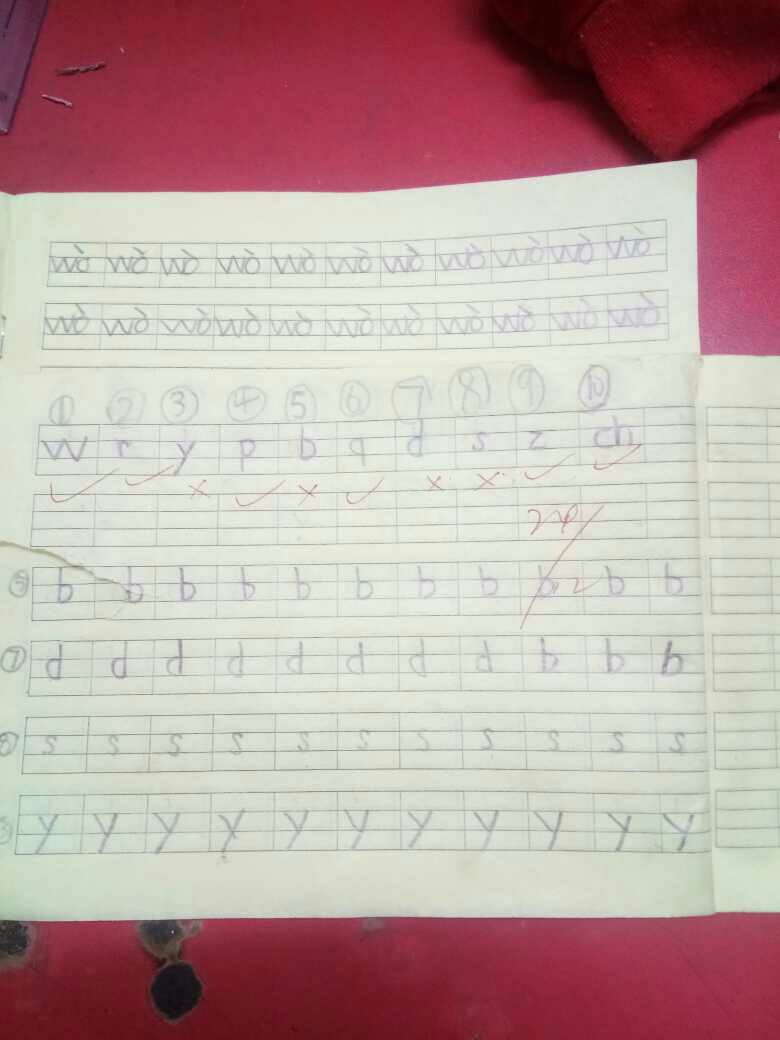 wò wò wò wò wò wò wò wò wò wò wò
wò wò wò wò wò wò wò wò wò wò wò
① ② ③ ④ ⑤ ⑥ ⑦ ⑧ ⑨ ⑩
w r y p b q d s z ch
⑤ b b b b b b b b b b b
⑦ d d d d d d d d b b b
⑧ s s s s s s s s s s s
③ y y y y y y y y y y y